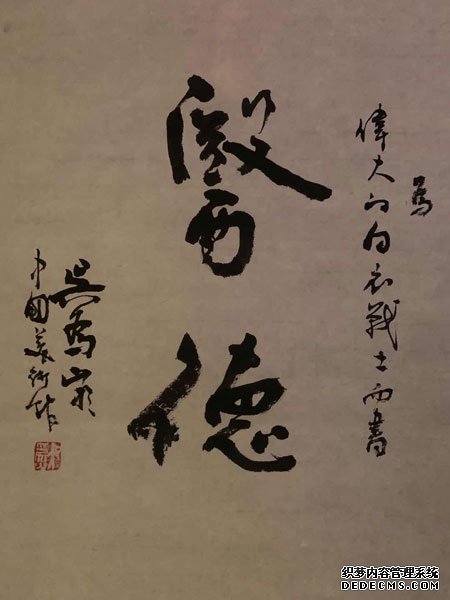 為
偉大的白衣戰士而書
醫德
吳為山
中國美術館
织梦内容管理系统
DEDECMS.COM